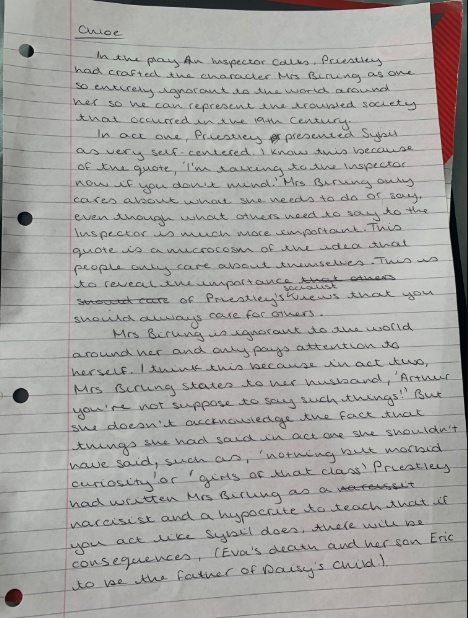 Chloe
In the play An Inspector Calls, Priestley
had crafted the character Mrs Birling as one
so entirely ignorant to the world around
her so he can represent the troubled society
that occurred in the 19th Century.
In act one, Priestley presented Sybil
as very self-centered. I know this because
of the quote, 'I'm talking to the Inspector
now if you don't mind.' Mrs Birling only
cares about what she needs to do or say,
even though what others need to say to the
Inspector is much more important. This
quote is a microcosm of the idea that
people only care about themselves. This is
to reveal the importance that others
should care of Priestley's socialist views that you
should always care for others.
Mrs Birling is ignorant to the world
around her and only pays attention to
herself. I think this because in act two,
Mrs Birling states to her husband, 'Arthur
you're not suppose to say such things!' But
she doesn't acknowledge the fact that
things she had said in act one she shouldn't
have said, such as, 'nothing but morbid
curiosity' or 'girls of that class!' Priestley
had written Mrs Birling as a
narcisist and a hypocrite to teach that if
you act like Sybil does, there will be
consequences, (Eva's death and her son Eric
to be the father of Daisy's child.)